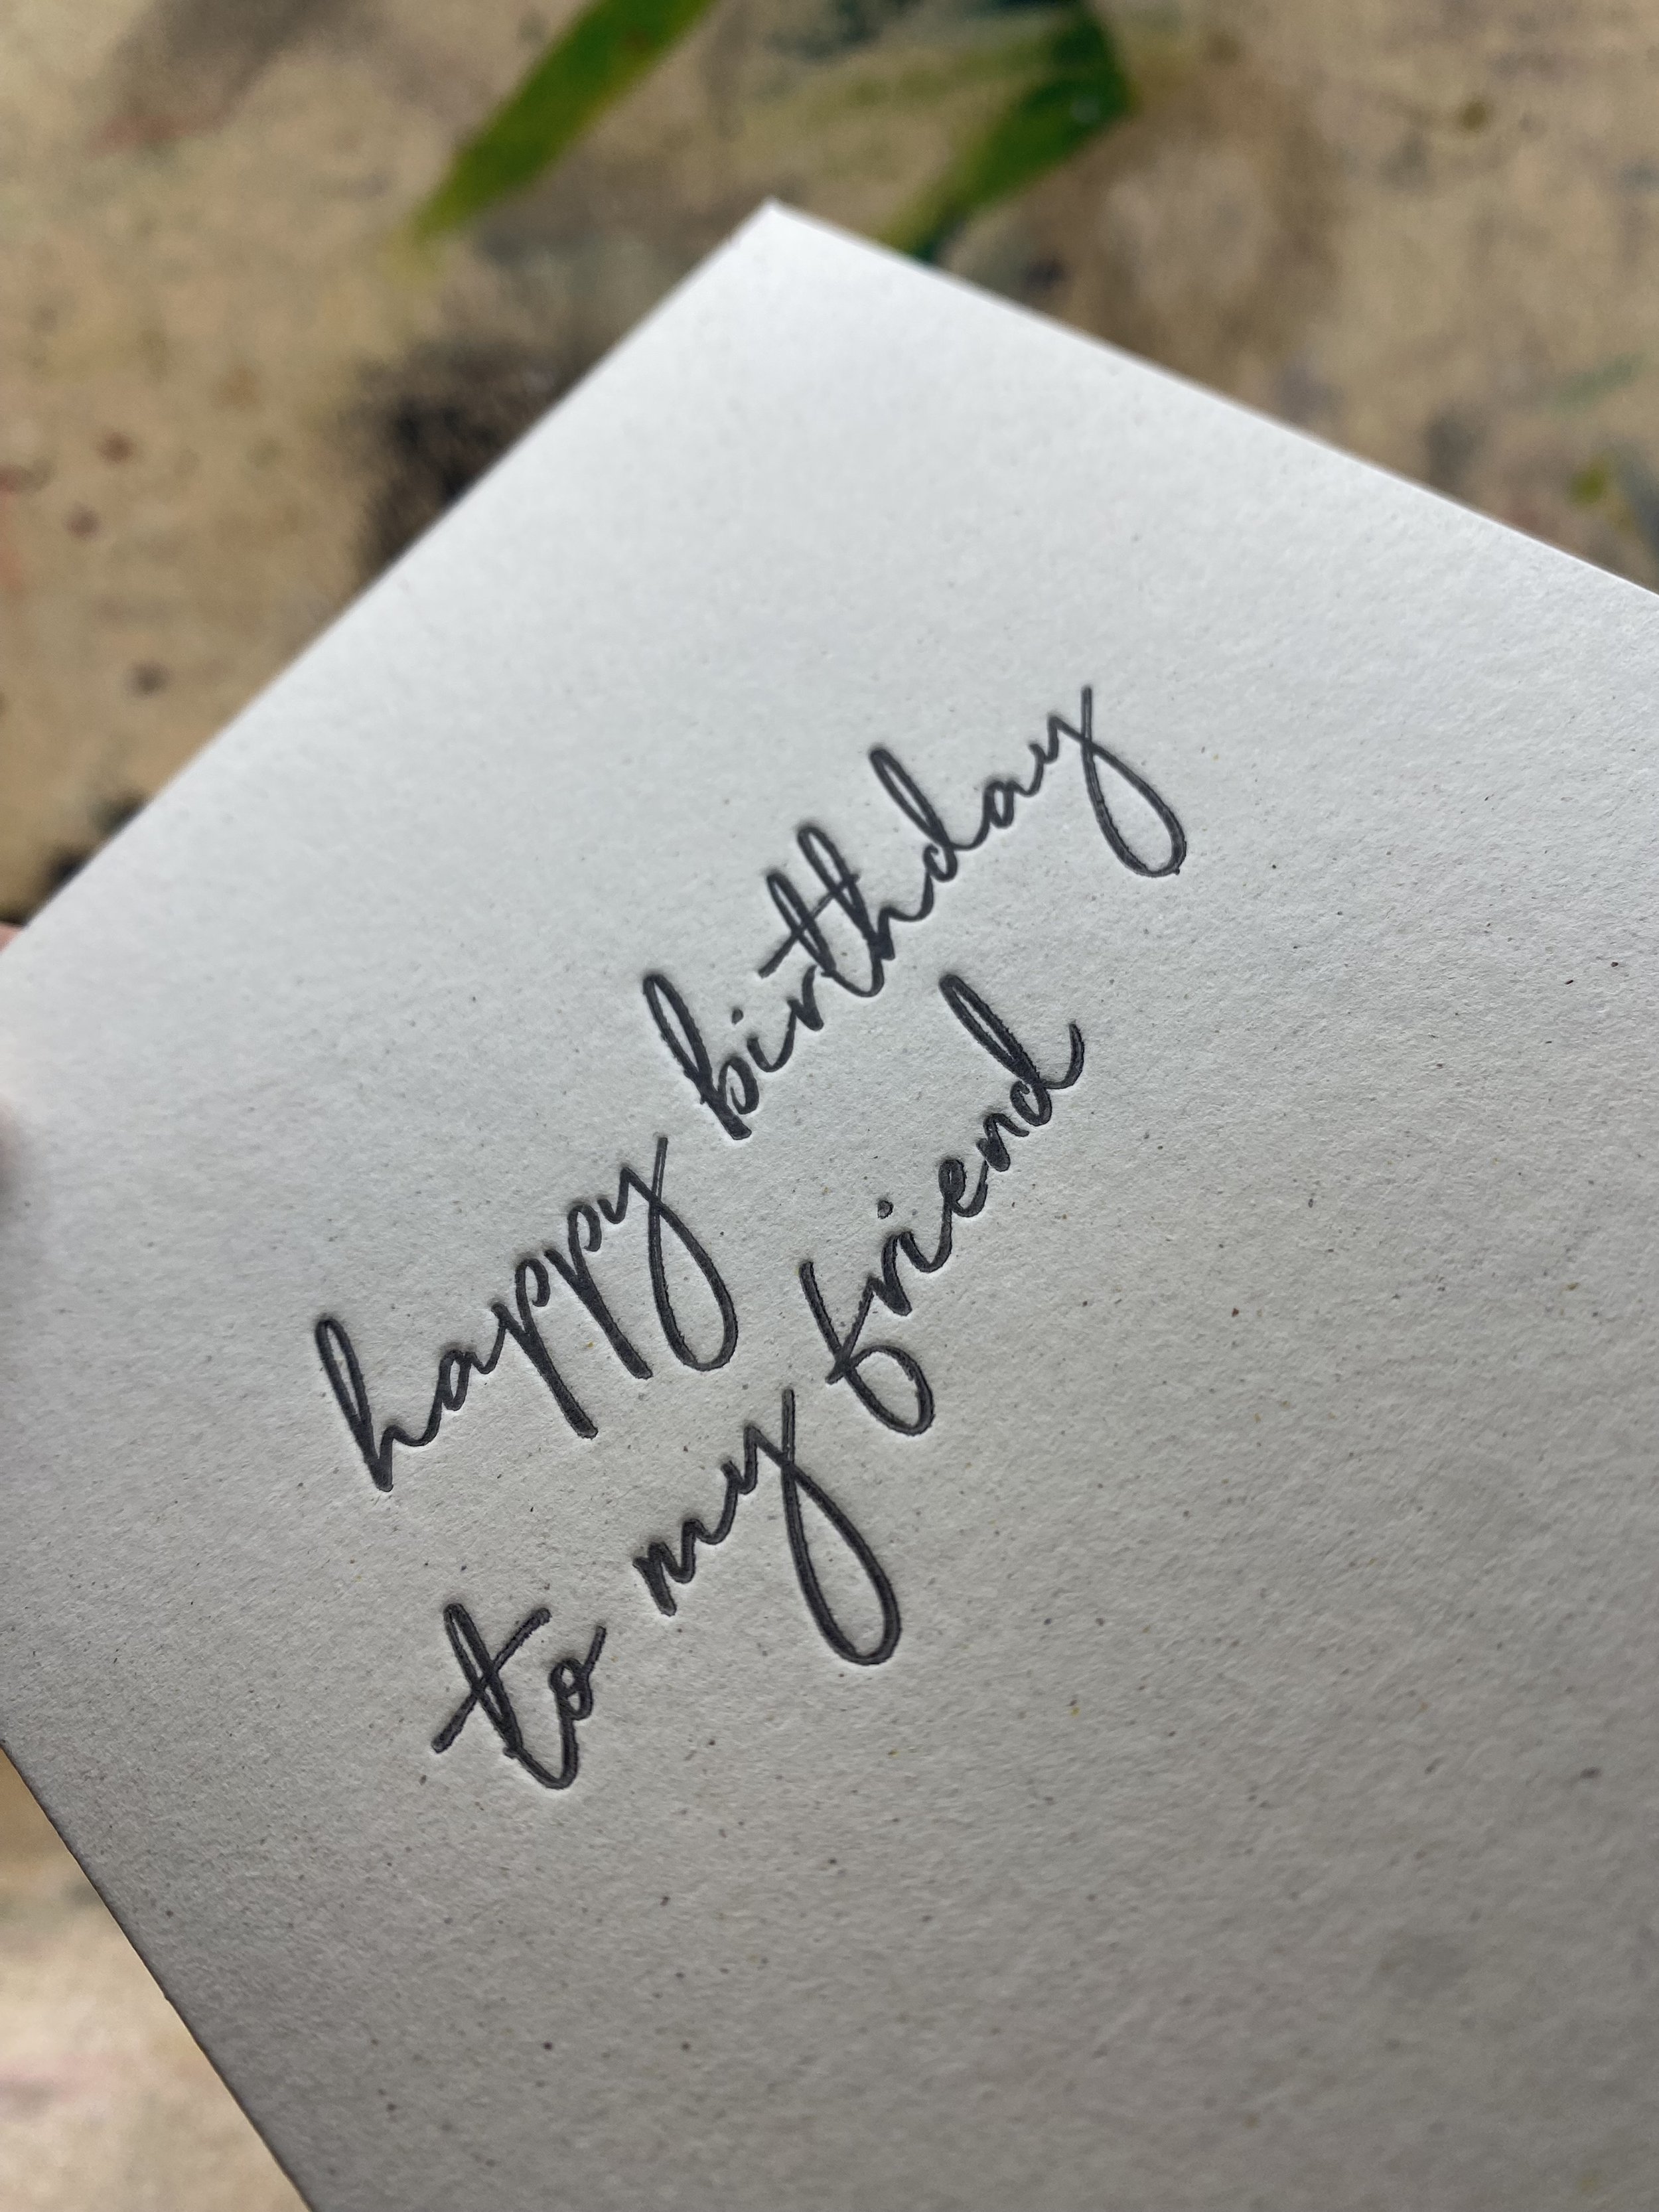 happy birthday
to my friend